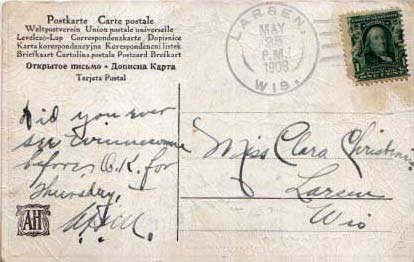 Postkarte Carte postale
Weltpostverein Union postale universelle
Levelező-Lap Correspondenzkarte Dopisnice
Karta korespondencyjna Korespondenčni listek
Briefkaart Cartolina postale Postcard Brefkort
Открытое письмо - Дописна Карта
Tarjeta Postal
LARSEN,
MAY
P.M.
1908
WIS.
Did you ever
see Winneconne
before, O.K. for
Thursday.
AH
Miss Clara
Larsen
Wis